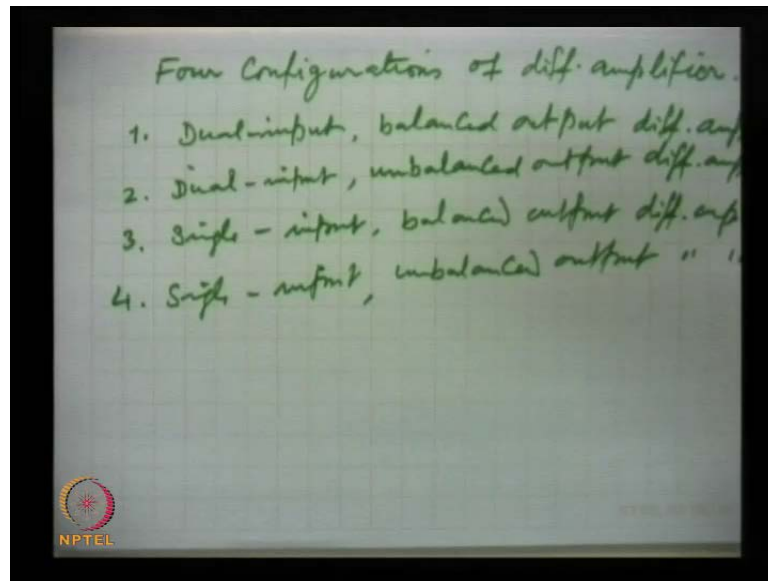 Four Configurations of diff. amplifier.
1. Dual-input, balanced output diff. amp
2. Dual-input, unbalanced output diff. amp
3. Single-input, balanced output diff. amp
4. Single-input, unbalanced output " "
NPTEL